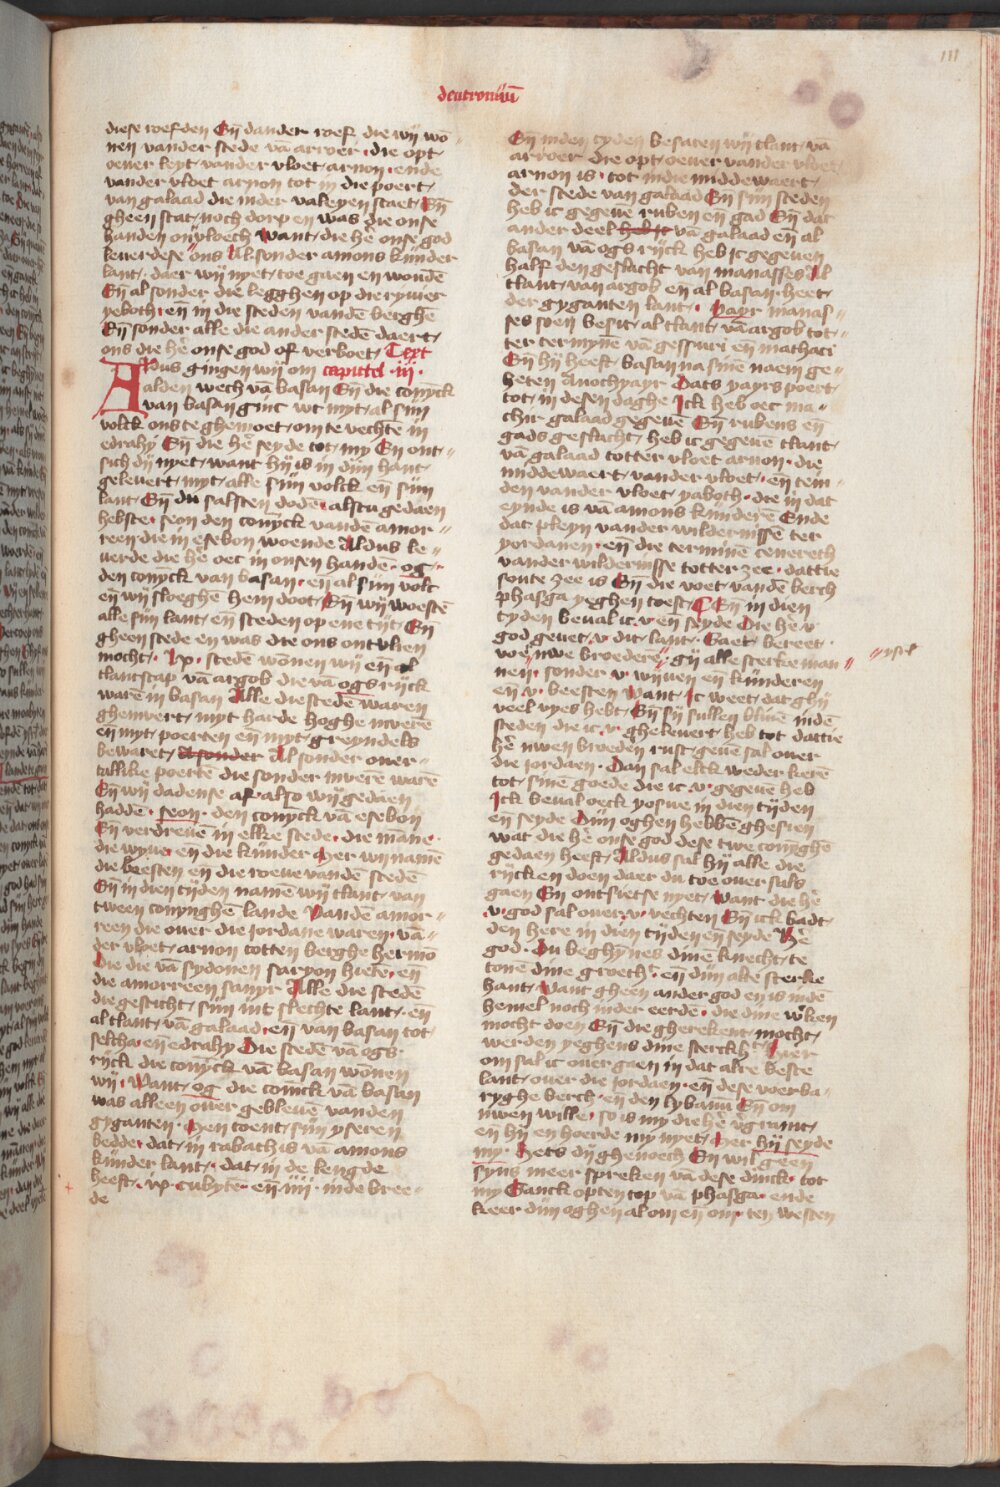 111
deutronimū
diese roefden Eñ dander roef die wij wō„
nen vander stede vā arroer · die opt
oeuer leyt vander vloet arnon · ende
vander vloet arnon tot in die poert
van galaad die inder valeyen staet Eñ
gheen stat noch dorp en was die onse
handen ontvloech Want die hē onse god
leuerdese ons Al sonder amons kinder
lant daer wij nyet toe gaen en wondē
Eñ al sonder die legghen op die ryuier
yeboth · eñ in die steden vandē berghē
Eñ sonder alle die ander stedē daert
ons die hē onse god of verboet Text
Aldus gingen wij om capittel · iij ·
alden wech vā basan Eñ die conÿck
van basan ginc wt myt al sijn
volck ons te ghemoet om te vechtē in
edrahy Eñ die hē seyde tot my En ont„
sich dij nyet want hij is in dijn hant
geleuert myt alle sijn volck eñ sijn
lant Eñ du salsten dodē · alstu gedaen
hebste · seon den conÿck vandē amor„
reen die in esebon woende Aldus le„
uerde die hē oec in onsen handē · og ·
den conÿck van basan · eñ al sijn volc
eñ wij sloeghē hem doot Eñ wij woestē
alle sijn lant eñ steden op ene tijt Eñ
gheen stede en was die ons ontvlien
mocht · Lx · stedē wōnen wij eñ al
tlantscap vā argob die vā ogs rijck
warē in basan Alle die stedē waren
ghemvert myt harde hoghe mverē
eñ myt poerten eñ myt greyndels
bewaret Asonder Al sonder ouer„
tallike poertē die sonder mverē warē
Eñ wij dadense af also wij gedaen
haddē · seon · den conyck vā esebon
Eñ verdreuē in elke stede · die māne ·
die wyue eñ die kinder Mer wij namē
die beesten eñ die roeue vanden stedē
Eñ in dien tijden namē wij tlant van
tween conynghē lande Vandē amor„
reen die ouer die jordane waren · vā„
der vloet arnon totten berghe hermō
Die die vā sydonen saryon hiete · eñ
die amorreen sanyr Alle die stedē
die gesticht sijn int slechte lant · eñ
al tlant vā galaad · eñ van basan tot
seltha · eñ edrahy Die stedē vā ogs
rijck die conÿck vā basan wōnen
wij · Want og die conick vā basan
was alleen ouer gebleuē vanden
gyganten · Men toent sijn yseren
bedde · dat in rabath is vā amons
kinder lant · dat in de lengde
heeft · ix · cubyte · eñ · iiij · in de bree„
de
Eñ inden tyden besaten wij tlant vā
arroer die opt oeuer vander vloet
arnon is · tot indie middewaert
der stede van galaad Eñ sijn steden
heb ic gegeuē ruben eñ gad Eñ dat
ander deel heb ic vā galaad eñ al
basan vā ogs rijck heb ic gegeuen
half den geslacht van manasses Al
tlant van argob eñ al basan · heet
der gyganten lant · Yayr manas„
ses soen besit al tlant vā argob tot„
ter termyne vā gessuri eñ mathati
Eñ hij heeft basan na sinē naem ge„
heten Anothyayr Dats yayrs poert
tot in desen daghe Ick heb oec ma„
chir galaad gegeuē Eñ rubens eñ
gads geslacht heb ic gegeuē tlant
vā galaad totter vloet arnon · die
middewaert vander vloet · eñ tein„
den vander vloet yaboth · die in dat
eynde is vā amons kinderē Ende
dat pleyn vander wildernissē ter
yordanen · eñ die terminē cenereth
vander wildernisse totter zee · dattie
soute zee is Eñ die voet vandē berch
phasga yeghen toest Eñ in dien
tyden beual ic · v · eñ seyde Die hē · v ·
god geuet · v · dit lant · Gaet bereet
voer uwe broederē · gij alle sterke man„
nen · sonder v · wijuen eñ kinderen
eñ · v · beesten Want ic weet dat ghij
veel vyes hebt Eñ sij sullen bliuē indē
steden die ic · v · gheleuert heb tot dattie
hē uwen broeden rust geue sal ouer
die jordaen · Dan sal elck weder kerē
tot sinē goede die ic · v · gegeuē heb
Ick beual oeck yosue in dien tijden
eñ seyde Dijn oghen hebbē ghesien
wat die hē onse god dese twe conighē
gedaen heeft Aldus sal hij alle die
rijcken doen daer du toe ouer sals
gaen Eñ ontsietse nyet Want die hē
· v · god sal ouer · v · vechten Eñ ick badt
den here in dien tijden eñ seyde Hē
god · Du beghijnes dinē knecht te
tonē dine groethz · eñ dijn alre sterke
hant Want gheen ander god en is indē
hemel noch inder eerde · die dine wken
mocht doen Eñ die gherekent mocht
werden yeghens dine sterckhz Hier
om sal ic ouer gaen in dat alre beste
lant ouer die jordaen · eñ dese voerba„
ryghe berch · eñ den lybanū Eñ om
uwen wille · so is my die hē vgramt
eñ hij en hoerde my nyet Mer hij seyde
my · Hets dij ghenoech Eñ wil geen
syns meer spreken vā dese dinck · tot
my Ganck opten top vā phasga · ende
keer dijn oghen al om eñ om · ten westen
„ysrl